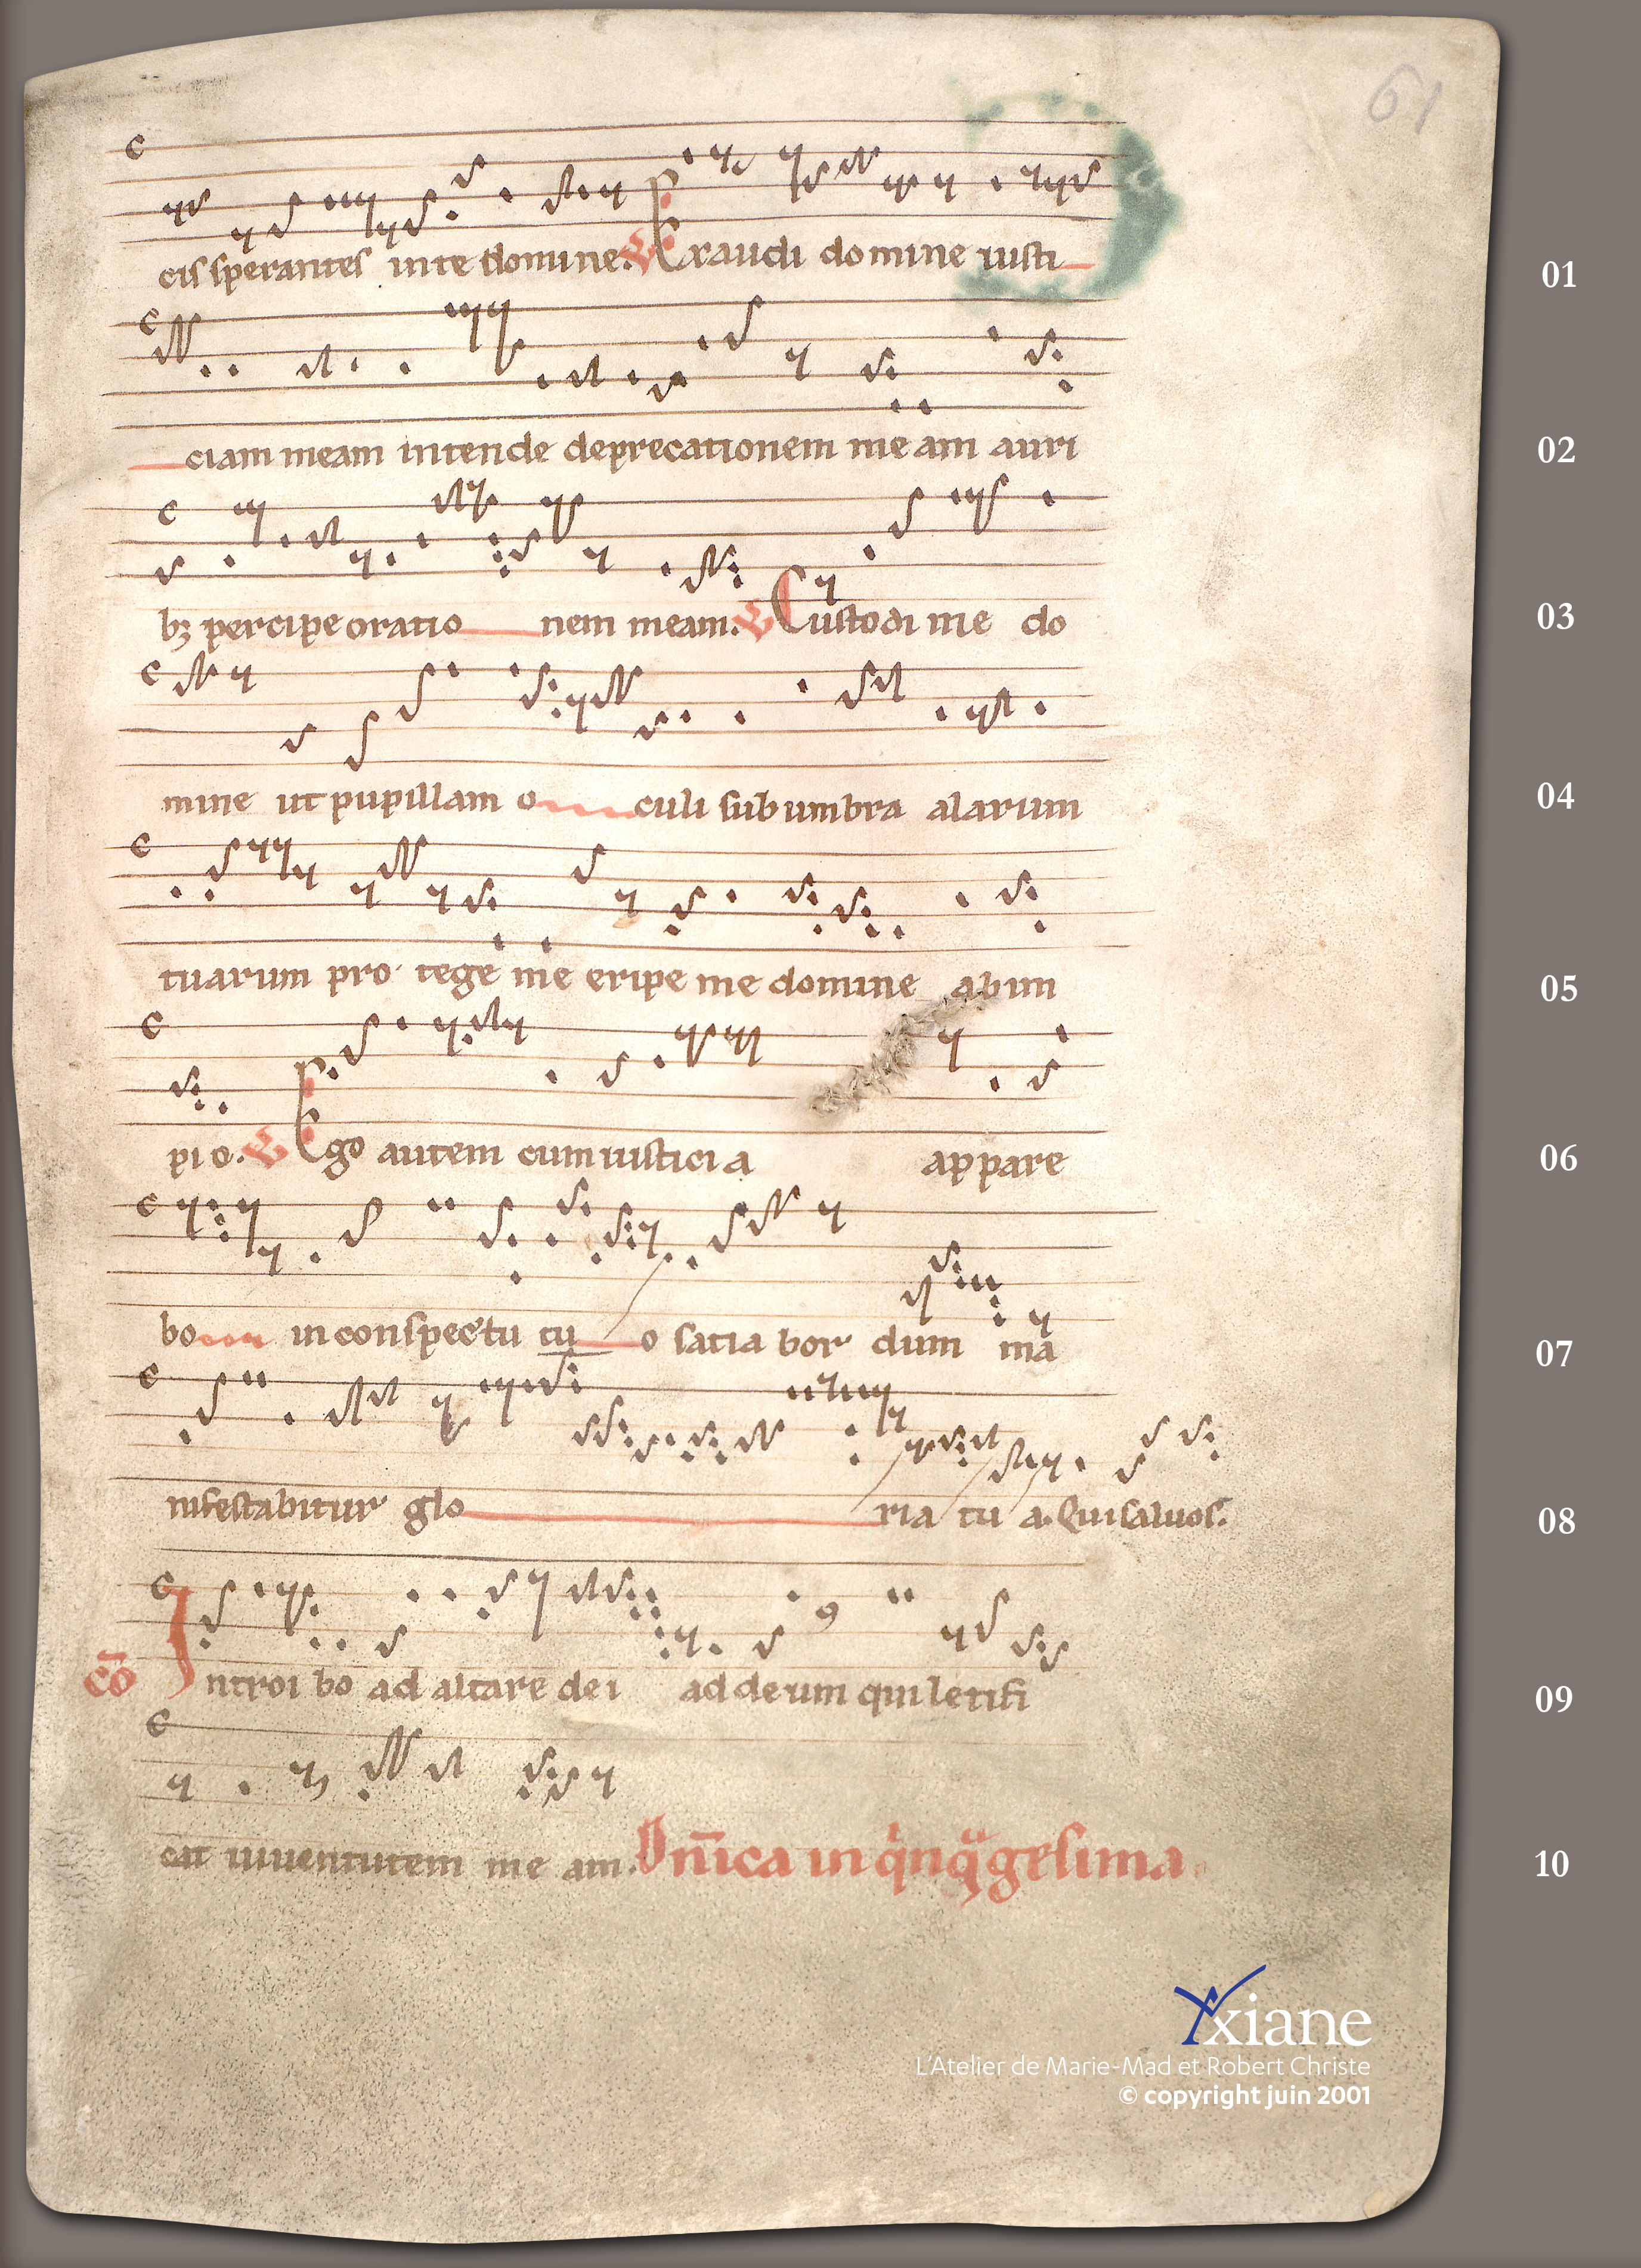 61
cis sperantes in te domine. V Exaudi domine iusti
01
ciam meam intende deprecationem me am auri
02
bꝫ percipe oratio nem meam. V Custodi me do
03
mine ut pupillam o culi sub umbra alarum
04
tuarum pro tege me eripe me domine ab im
05
pio. V Ego autem cum iusticia appare
06
bo in conspectu tu o satia bor dum ma
07
nifestabitur glo ria tu a. Qui saluos.
08
cō Introi bo ad altare dei ad deum qui letifi
09
cat iuuentutem me am. Dn̄ica in q̇nq̈gesima
10
Xxiane
L'Atelier de Marie-Mad et Robert Christe
© copyright juin 2001